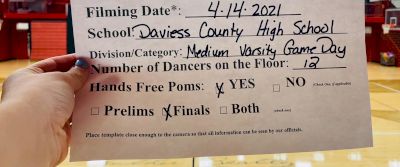 Filming Date*: 4-14-2021
School: Daviess County High School
Division/Category: Medium Varsity Game Day
Number of Dancers on the Floor: 12
Hands Free Poms: YES NO (Check One, if applicable)
Prelims Finals Both (check one)
Place template close enough to the camera so that all information can be seen by our officials.